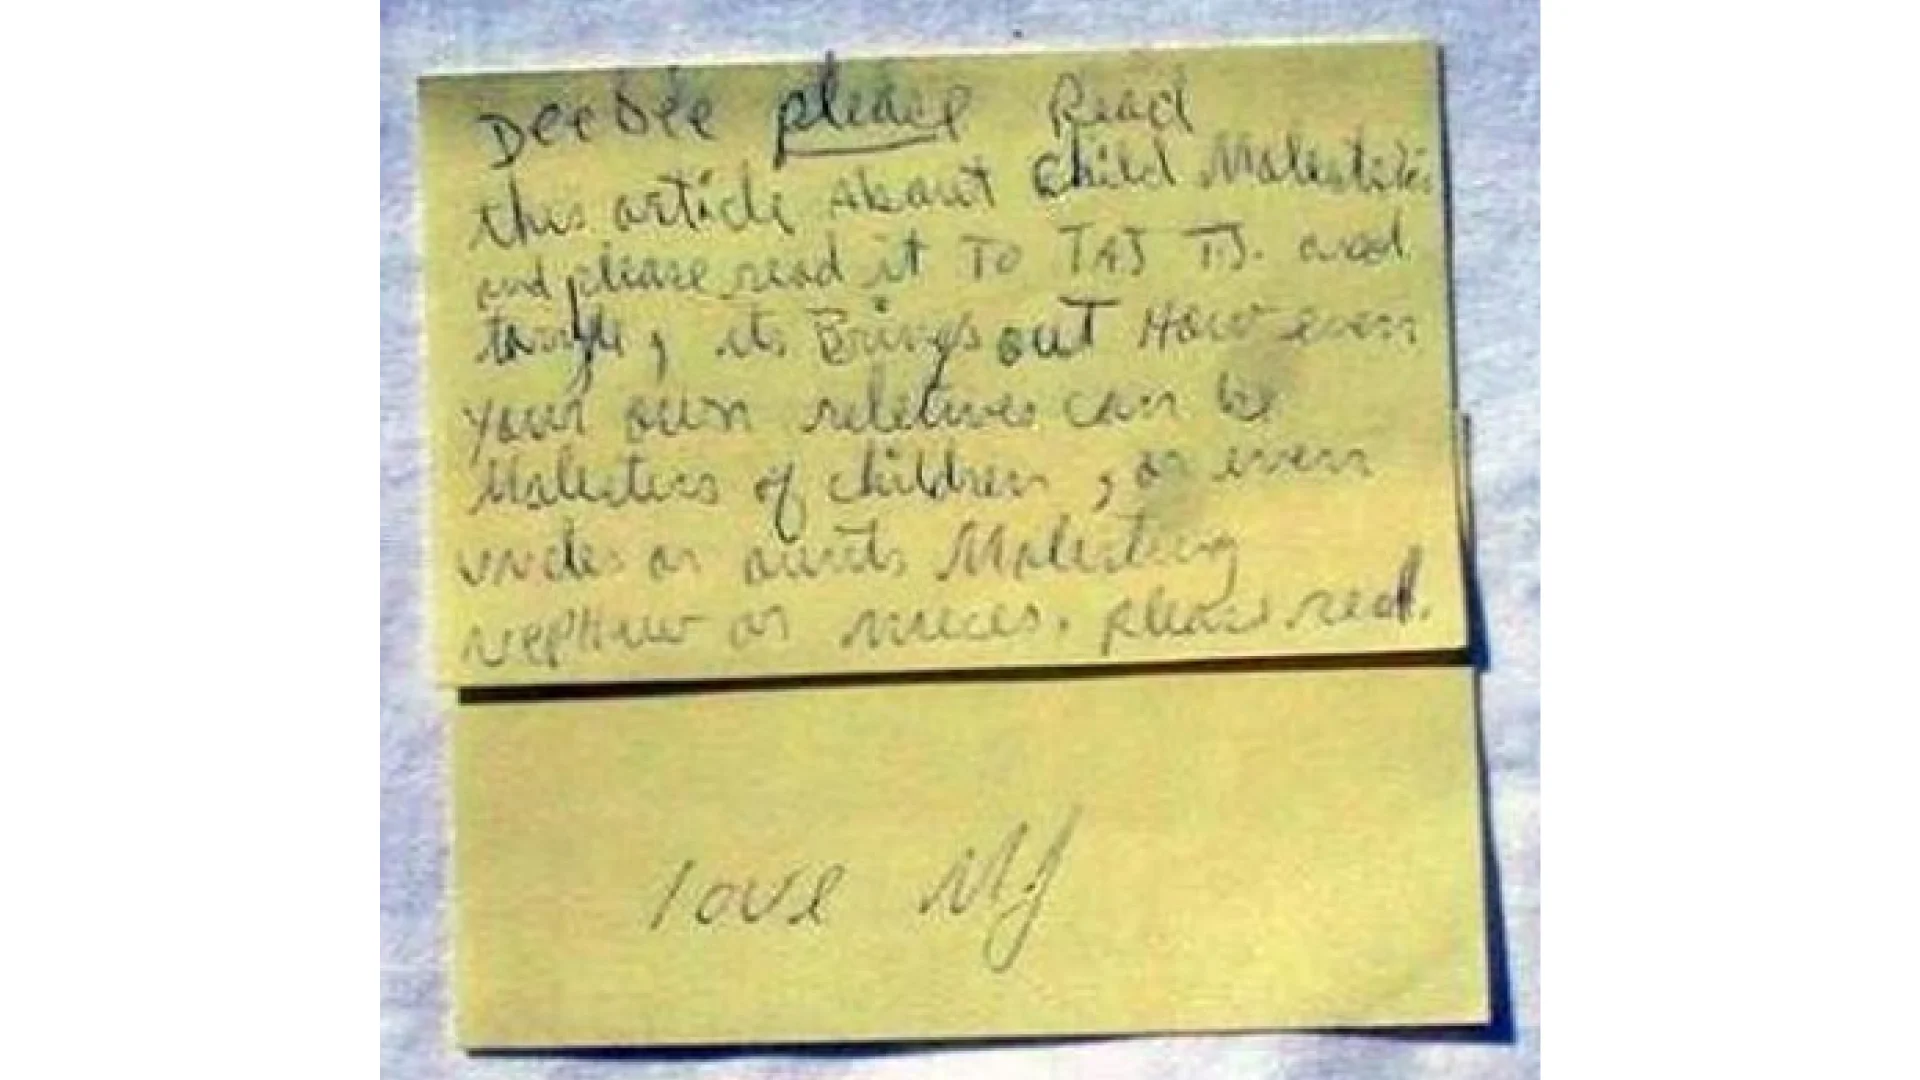 DeeDee please Read
this article About Child Molesting
and please read it TO TAJ T.J. and
taryll, its Brings out How even
your own reletives can be
Molesters of children, or even
uncles or aunts Molesting
nepHew or nieces. please read.
love MJ